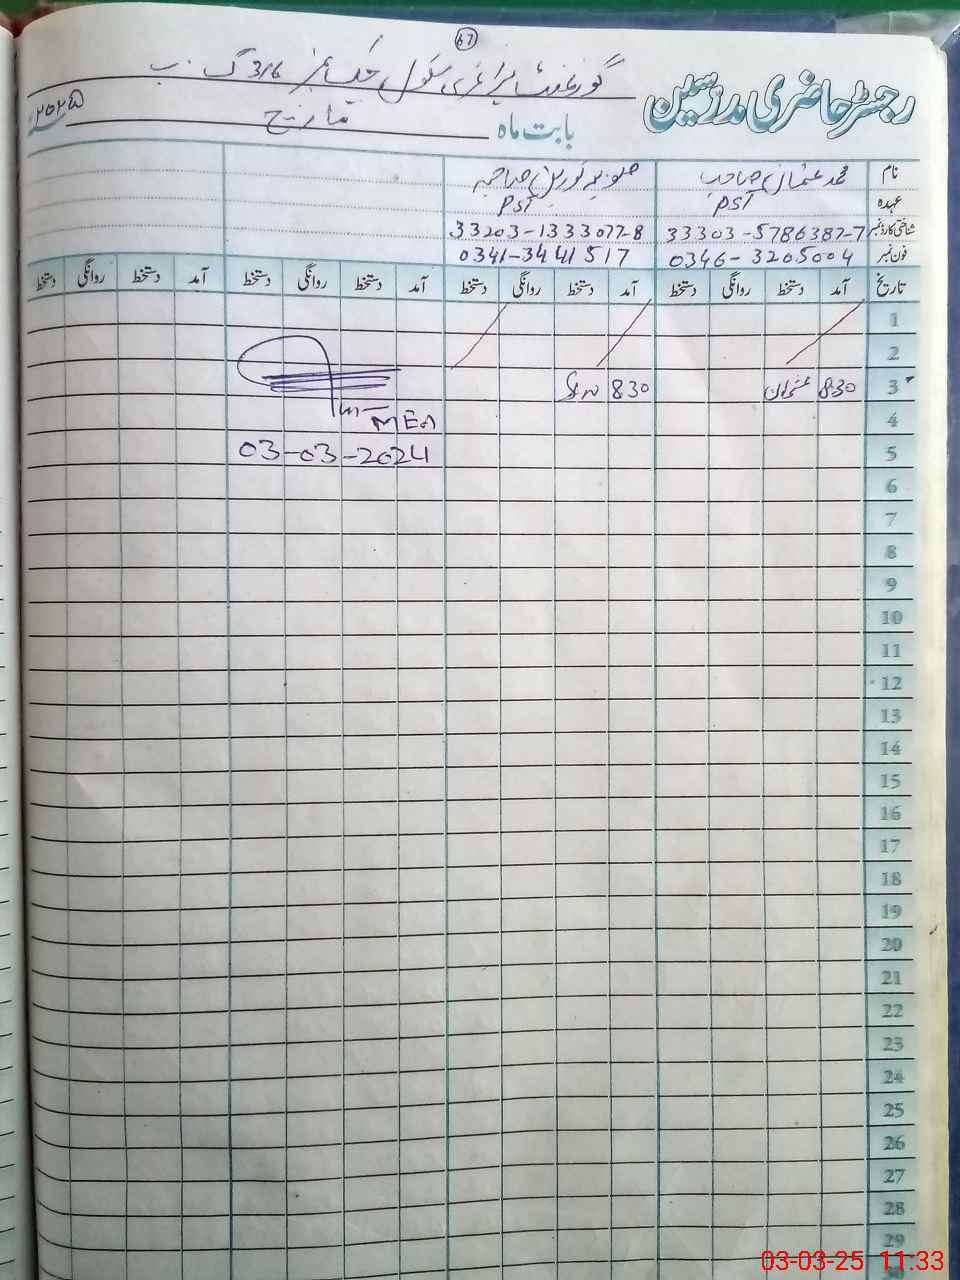 67
گورنمنٹ پرائمری سکول چک نمبر 316 گ ب
رجسٹر حاضری مدرسین
بابت ماہ مارچ ۲۰۲۵
نام محمد عثمان صاحب صاحبہ
عہدہ PST PST
شناختی کارڈ نمبر 33303-5786387-7 33203-1333077-8
فون نمبر 0346-3205004 0341-3441517
تاریخ آمد دستخط روانگی دستخط آمد دستخط روانگی دستخط آمد دستخط روانگی دستخط آمد دستخط روانگی دستخط
1
2
3 830 عثمان 830
4 MEA
5 03-03-2024
6
7
8
9
10
11
12
13
14
15
16
17
18
19
20
21
22
23
24
25
26
27
28
29
30
03-03-25 11:33